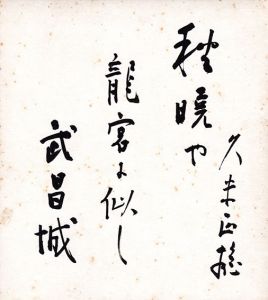 久米正雄
秋暁や
龍宮に似し
武昌城